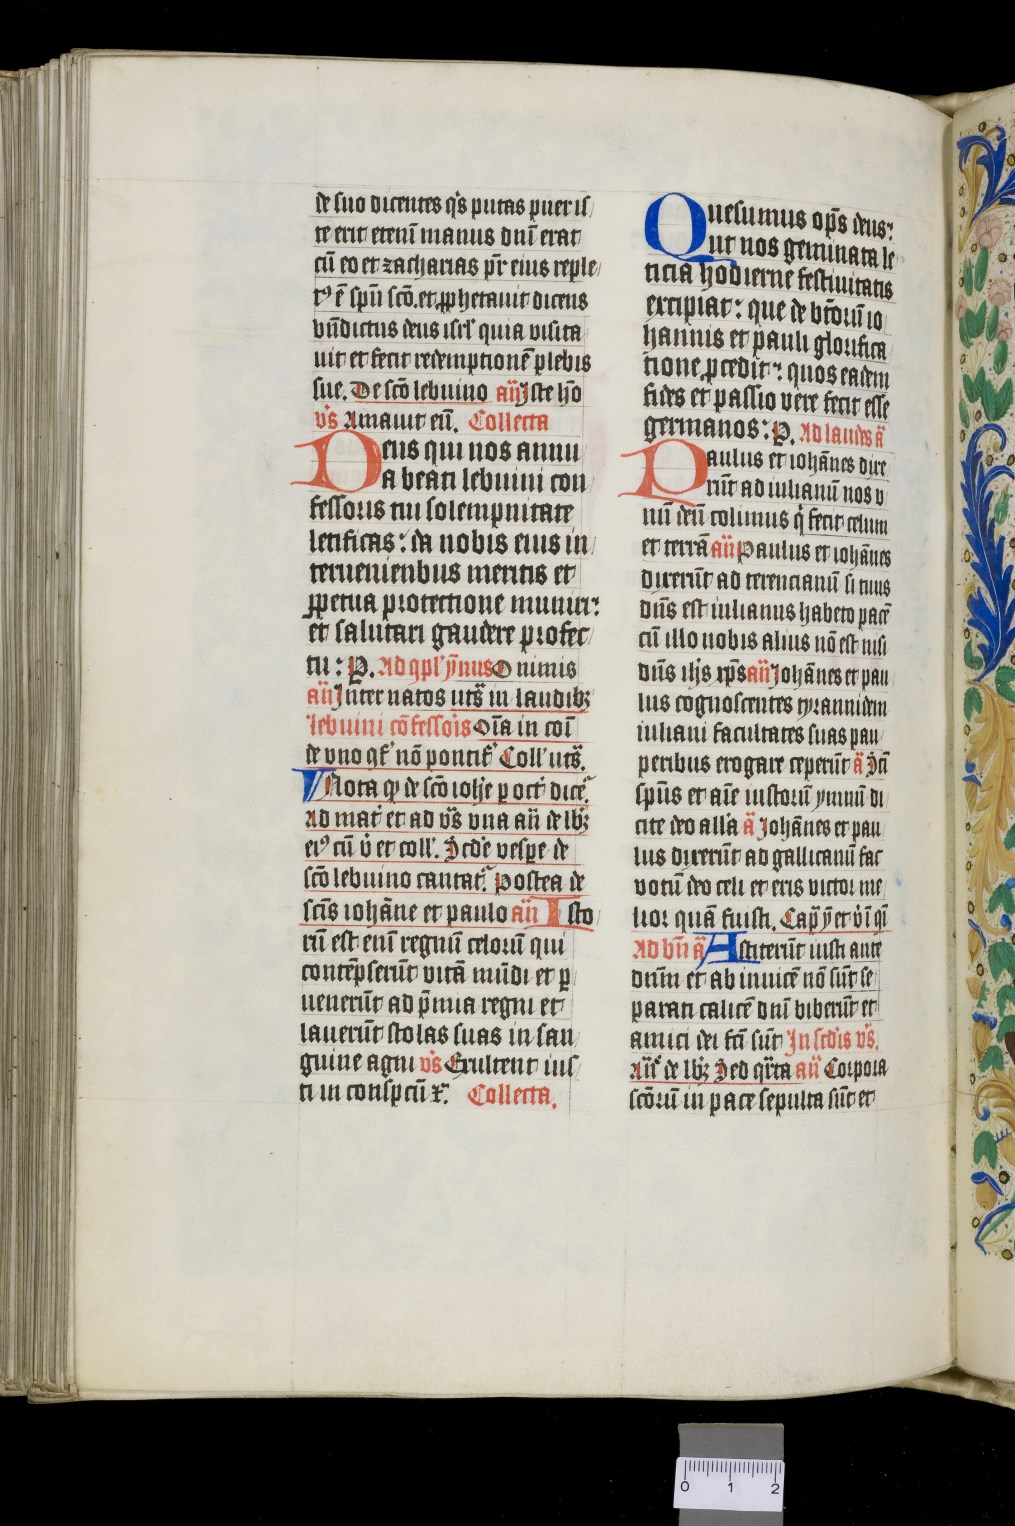 de suo dicentes q̄s putas puer is/
te erit eteni manus dnī erat
cū eo et zacharias pr̄ eius reple/
tꝰ ē spū scō. et ꝓphetauit dicens
bn̄dictus deus isrl' quia visita
uit et fecit redemptionē plebis
sue. De scō lebuino añ Iste hō
v̄s Amauit eū. Collecta
Deus qui nos annu
a beati lebuini con
fessoris tui solempnitate
letificas: da nobis eius in/
teruenientibus meritis et
ꝑpetua protectione muniri:
et salutari gaudere profec/
tu: P. Ad 9pl' ȳnus O nimis
añ Inter natos uts̄ in laudibꝫ
lebuini cōfessoris Oīa in coī
de vno 9f' nō pontif' Coll' uts̄.
Nota ꝙ de scō ioh̄e p oct' dicēt
Ad mat' et ad v̄s vna añ de lbꝫ
eiꝰ cū v̄ et coll'. Scd'e vesꝑe de
scō lebuino cantat'. Postea de
scīs iohāne et paulo añ Isto/
rū est enī regnū celorū qui
contēpserūt vitā mūdi et ꝑ
uenerūt ad p̄mia regni et
lauerūt stolas suas in san/
guine agni v̄s Exultent ius/
ti in conspcū x̄. Collecta.
Quesumus op̄s deus:
ut nos geminata le
ticia hodierne festiuitatis
excipiat: que de btōrū io
hannis et pauli glorifica
tione ꝓcedit: quos eadem
fides et passio vere fecit esse
germanos: P. Ad laudes ā
Paulus et iohānes dixe
rūt ad iulianū nos v
nū deū colimus q̄ fecit celum
et terrā añ Paulus et iohānes
dixerūt ad terencianū si tuus
dn̄s est iulianus habeto pacē
cū illo nobis alius nō est nisi
dn̄s ihs xp̄s añ Johānes et pau
lus cognoscentes tyrannidem
iuliani facultates suas pau
peribus erogare ceperūt ā Scī
spūs et aīe iustorū ymnū di
cite deo all'a ā Johānes et pau
lus dixerūt ad gallicanū fac
votū deo celi et eris victor me
lior quā fuisti. Cap̄ ȳ et v̄ī q̄
Ad bn̄ ā Astiterūt iusti ante
dnm et ab inuicē nō sūt se
parati calicē dnī biberūt et
amici dei fcī sūt In scd'is v̄s.
Añ' de lbꝫ Sed q̄rta añ Corpora
scōrū in pace sepulta sūt et